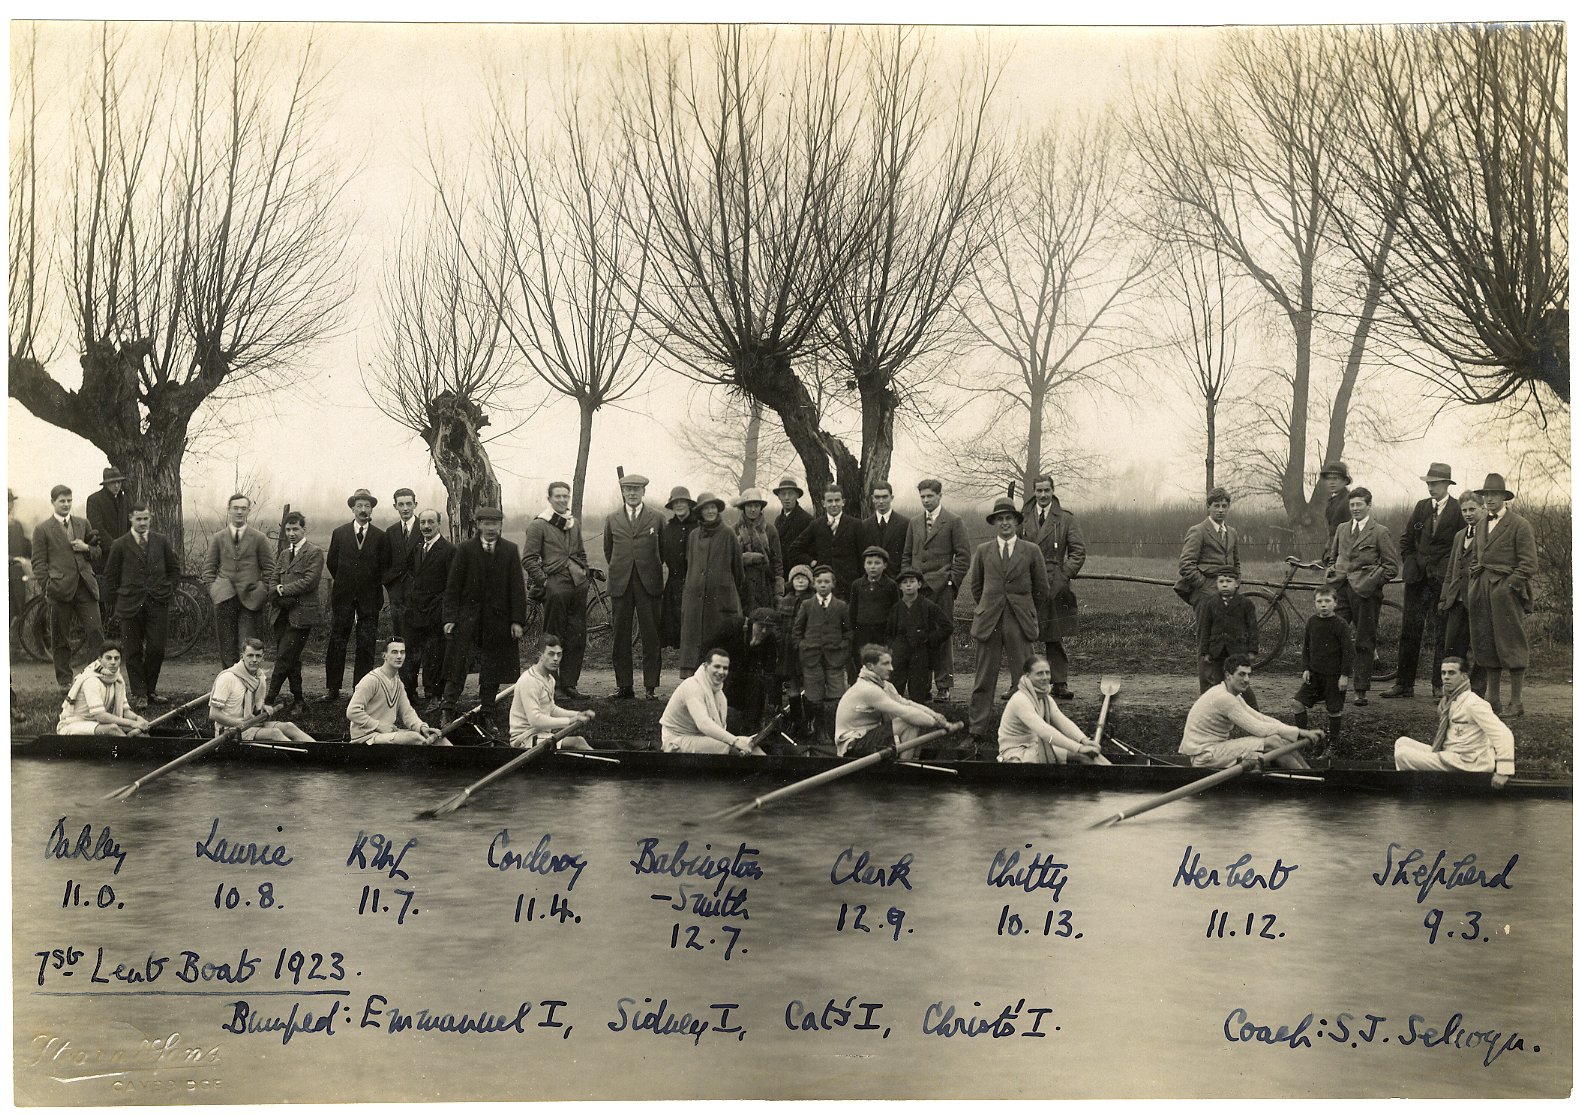 Oakley Laurie KEHL Corderoy Babington Clark Chitty Herbert Shepherd
-Smith
11.0. 10.8. 11.7. 11.4. 12.7. 12.9. 10.13. 11.12. 9.3.
1st Lent Boat 1923.
Bumped: Emmanuel I, Sidney I, Cat's I, Christ's I.
Coach: S.J. Selwyn.
& Sons
CAMBRIDGE